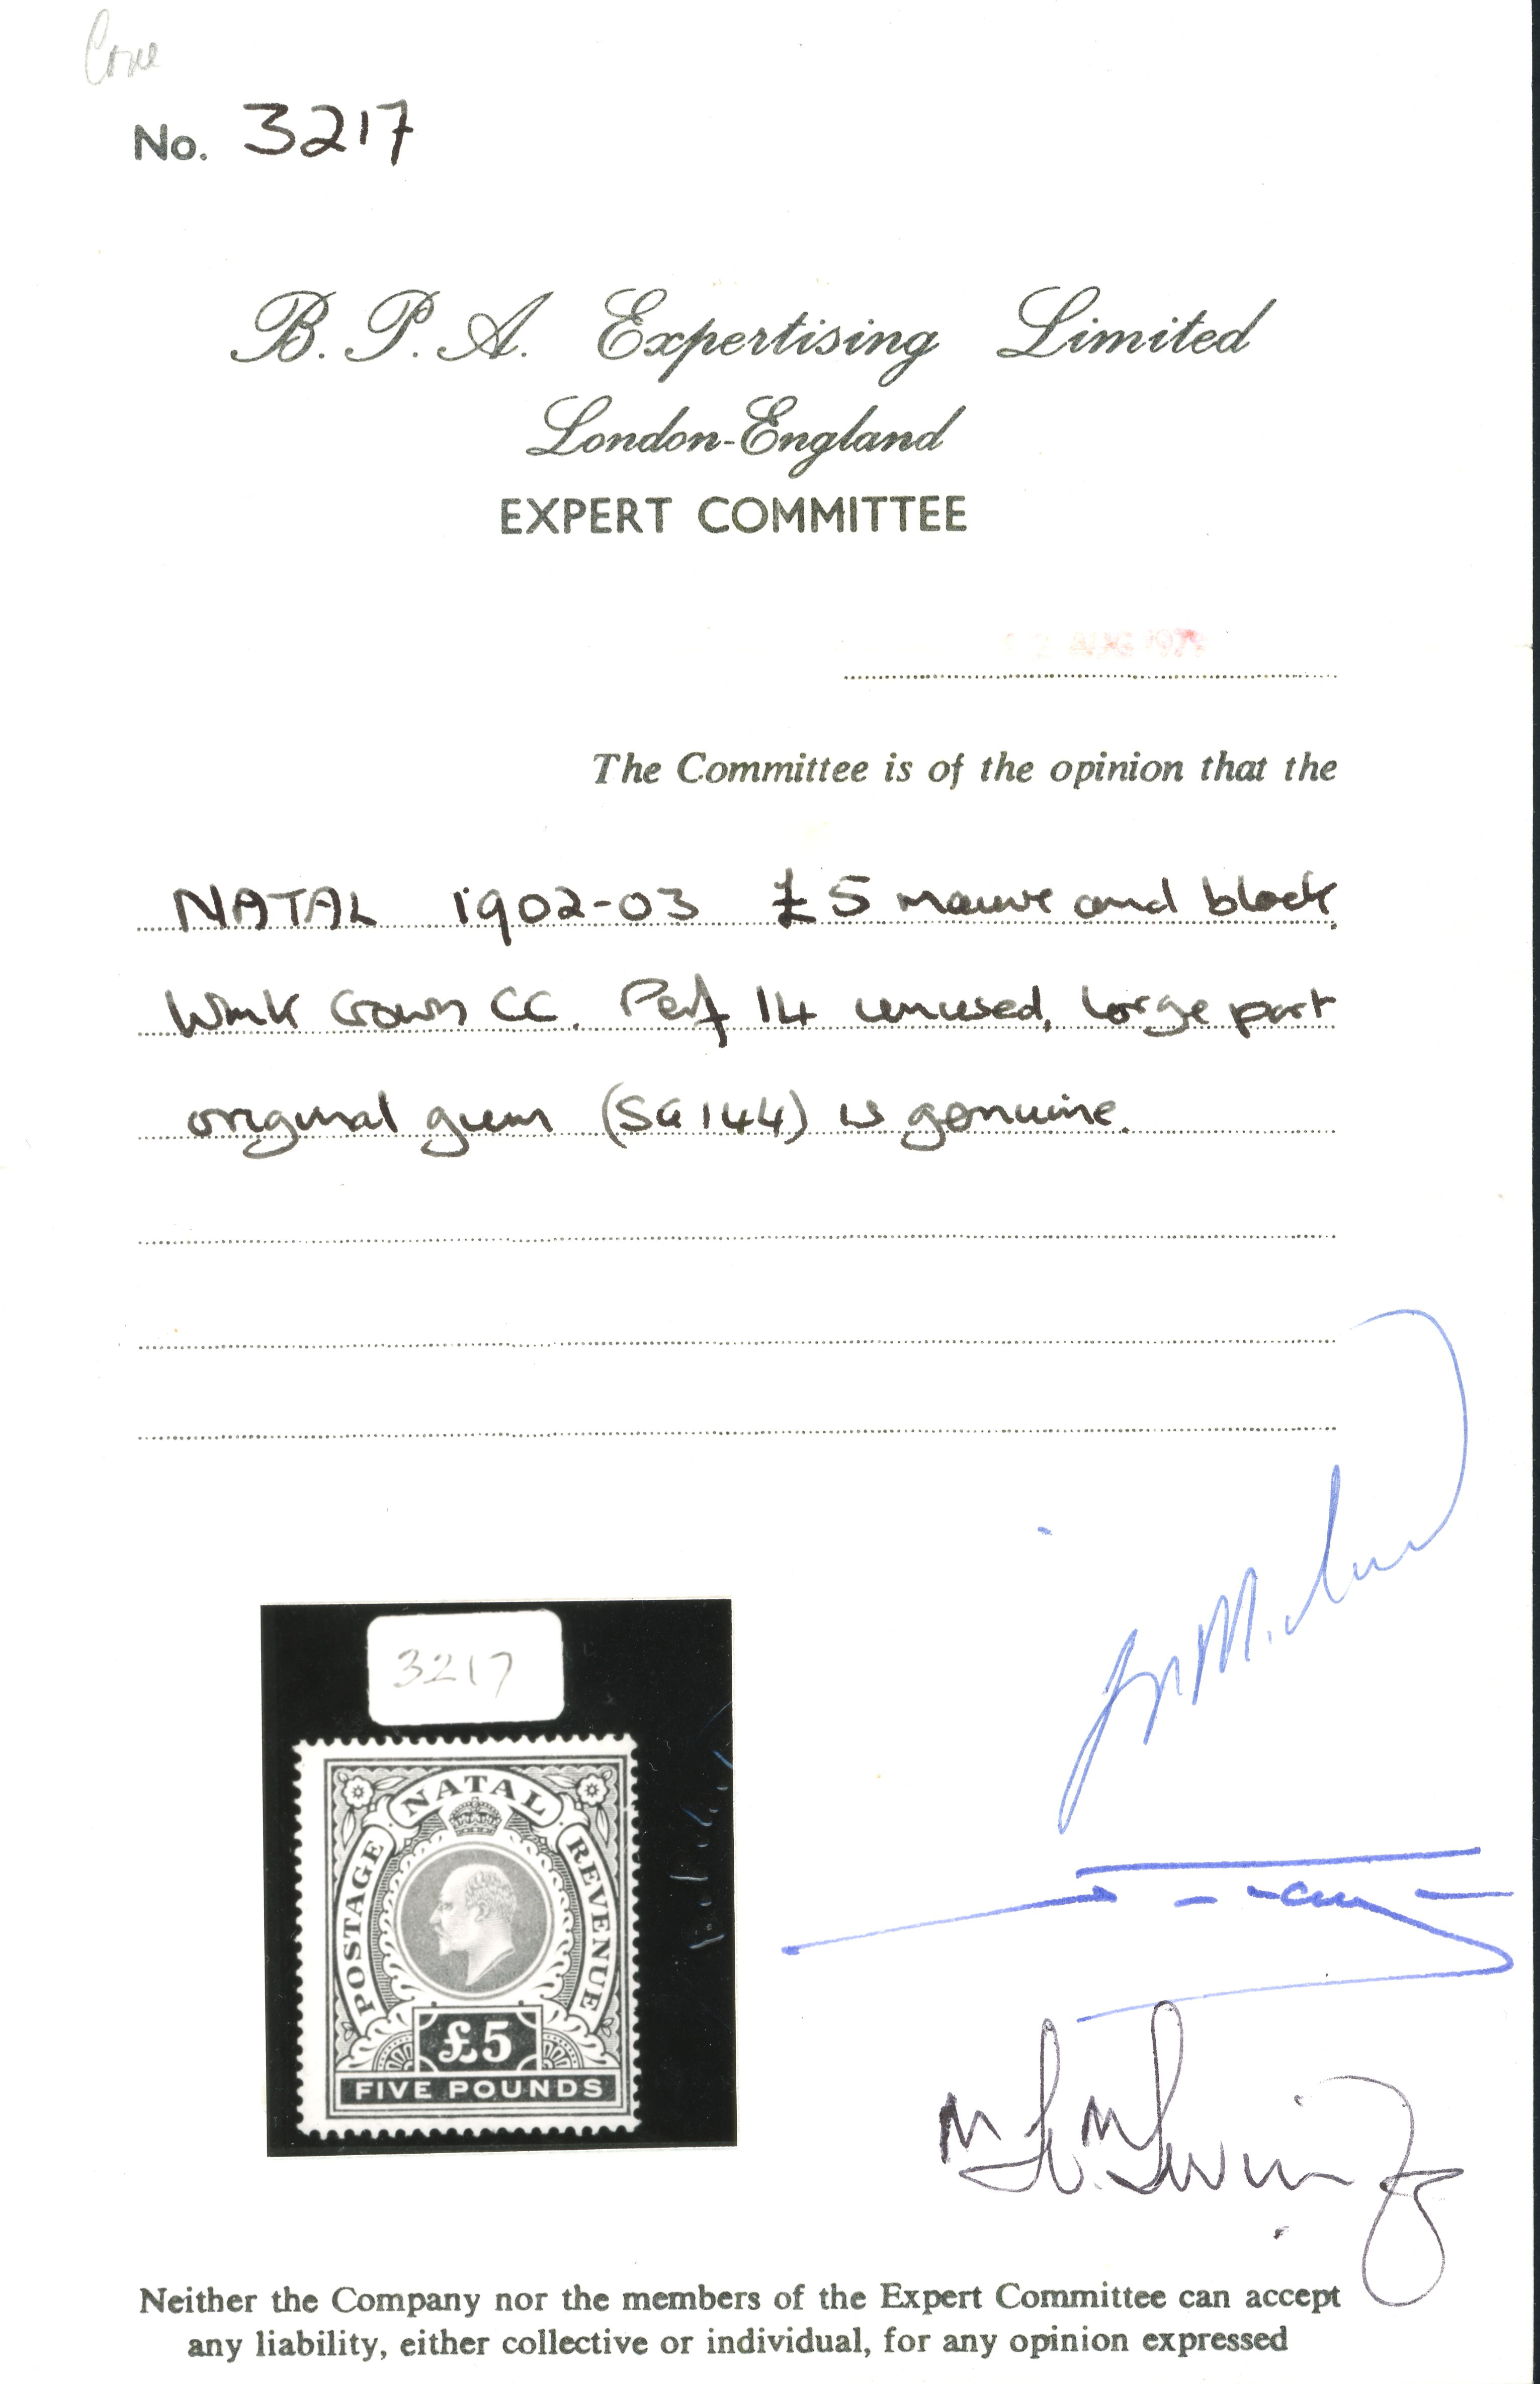 No. 3217
B. P. A. Expertising Limited
London-England
EXPERT COMMITTEE
2 AUG 197
The Committee is of the opinion that the
NATAL 1902-03 £5 mauve and black
Wmk Crown CC. Perf 14 unused, large part
original gum (SG 144) is genuine.
3217
NATAL
POSTAGE
REVENUE
£5
FIVE POUNDS
Neither the Company nor the members of the Expert Committee can accept
any liability, either collective or individual, for any opinion expressed